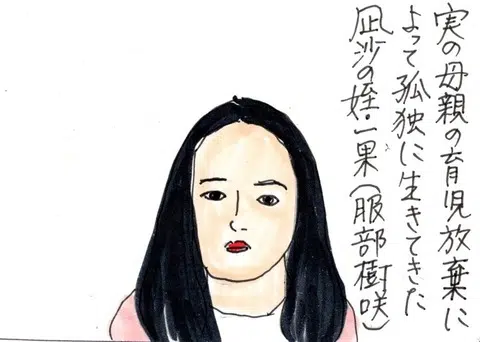 実の母親の育児放棄に
よって孤独に生きてきた
凪沙の姪・一果(服部樹咲)